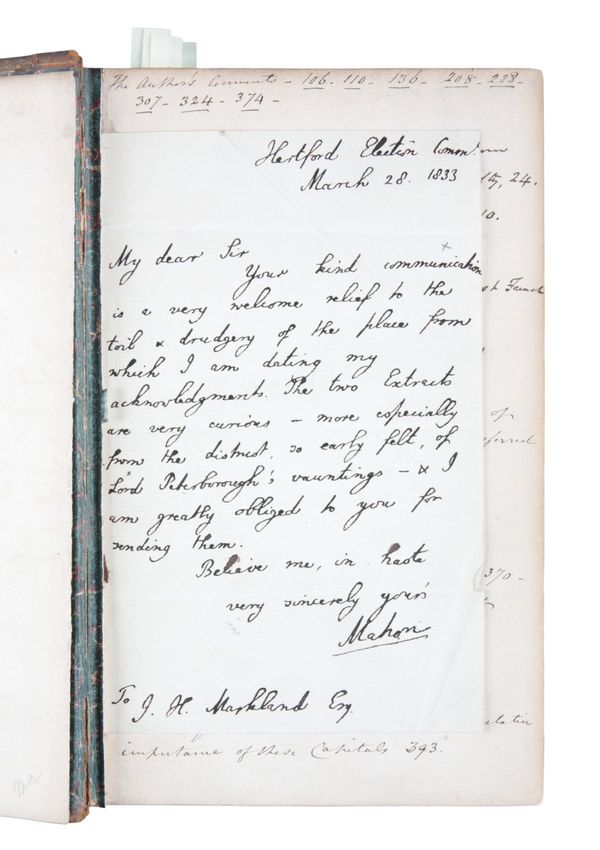 The Author's Comments - 106. 110 - 136 - 208 - 228 -
307 - 324 - 374 -
Hertford Election Comm.
March 28. 1833
24.
10.
My dear Sir
Your kind communication
is a very welcome relief to the
French
toil & drudgery of the place from
which I am dating my
acknowledgments. The two Extracts
are very curious – more especially
of
from the distrust, so early felt, of
Lord Peterborough's vauntings – & I
am greatly obliged to you for
sending them.
Believe me, in haste
370 -
very sincerely yours
Mahon
To J. H. Markland Esq.
importance of these Capitals 393.